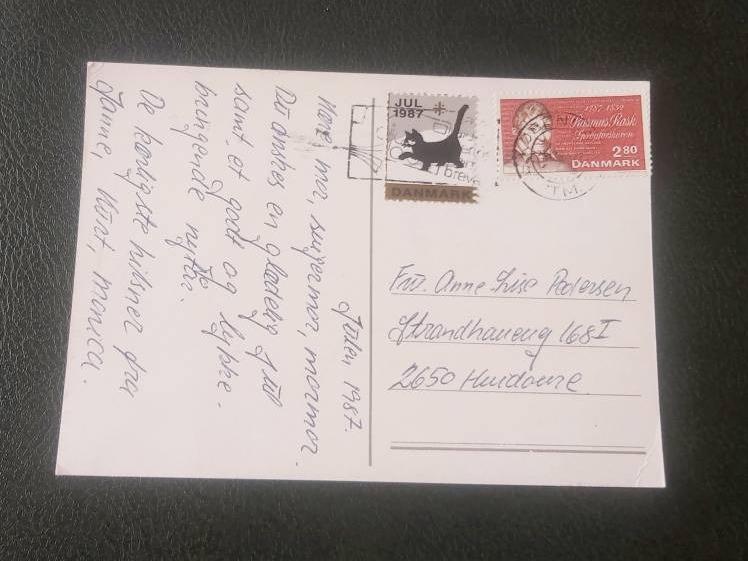 Julen 1987.
Kære mor, svigermor, mormor.
De ønskes en glædelig jul
samt et godt og lykke.
bringende nytår.
De kærligste hilsner fra
Janne, Kurt, monica.
JUL
1987
DANMARK
breve
1787-1832
Rasmus Rask
Sprogforskeren
2 80
DANMARK
T.M.
Fru. Anne Lise Pedersen
Strandhavevej 168 I
2650 Hvidovre.